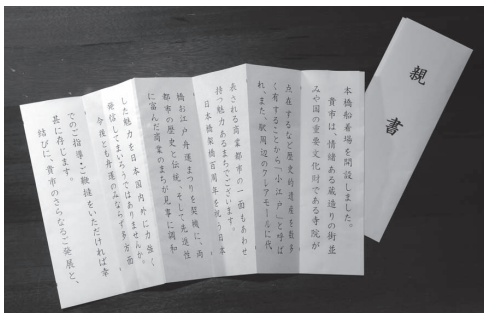 本橋船着場を開設しました。
貴市は、情緒ある蔵造りの街並
みや国の重要文化財である寺院が
点在するなど歴史的遺産を数多
く有することから「小江戸」と呼ば
れ、また、駅周辺のクレアモールに代
表される商業都市の一面もあわせ
持つ魅力あるまちでございます。
日本橋架橋百周年を祝う日本
橋お江戸舟運まつりを契機に、両
都市の歴史と伝統、そして先進性
に富んだ商業のまちが見事に調和
した魅力を日本国内外に力強く
発信してまいろうではありませんか。
今後とも舟運のみならず多方面
でのご指導・ご鞭撻をいただければ幸
甚に存じます。
結びに、貴市のさらなるご発展と、
親書